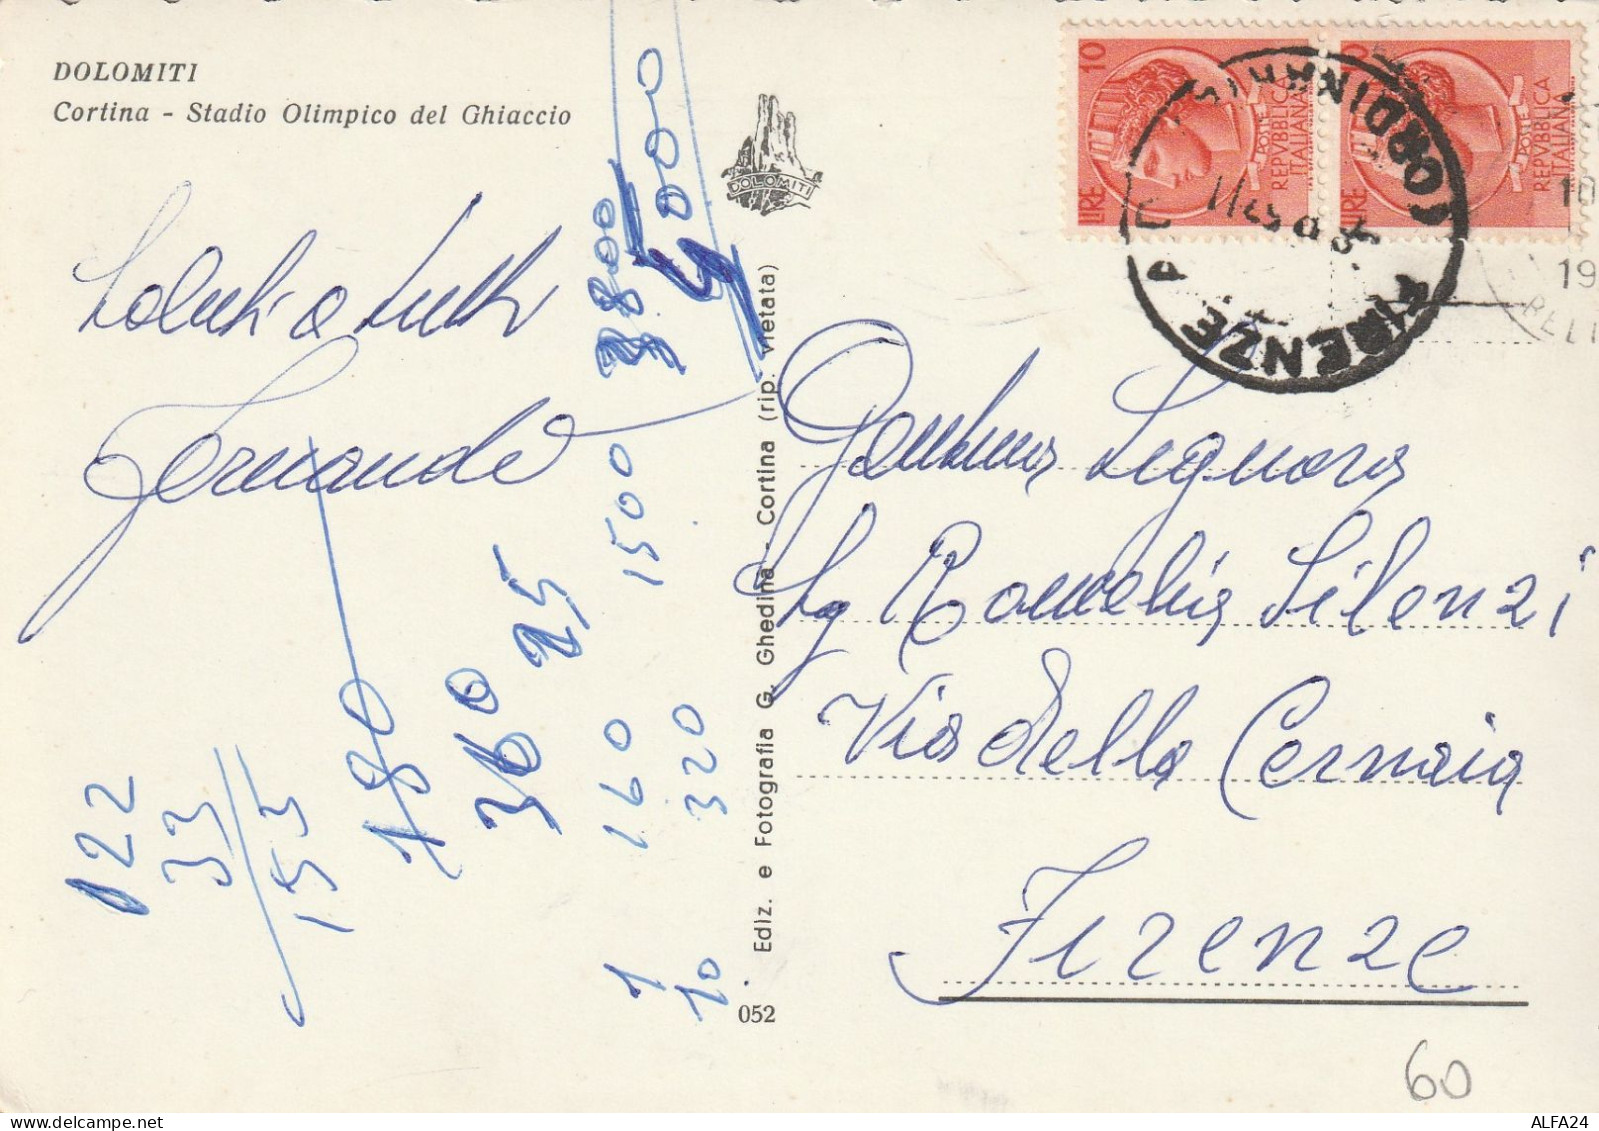 DOLOMITI
Cortina - Stadio Olimpico del Ghiaccio
Saluti a tutti
Fernando
DOLOMITI
LIRE 10
POSTE
REPVBBLICA
ITALIANA
LIRE
POSTE
REPVBBLICA
ITALIANA
FIRENZE
ORDINARIE
10
19
Gentma Signora
Sg Romelia Silenzi
Via della Cernaia
Firenze
Ediz. e Fotografia G. Ghedina - Cortina (rip. vietata)
052
122
33
153
180
360
25
1500
3800
160
320
1
10
60
ALFA24